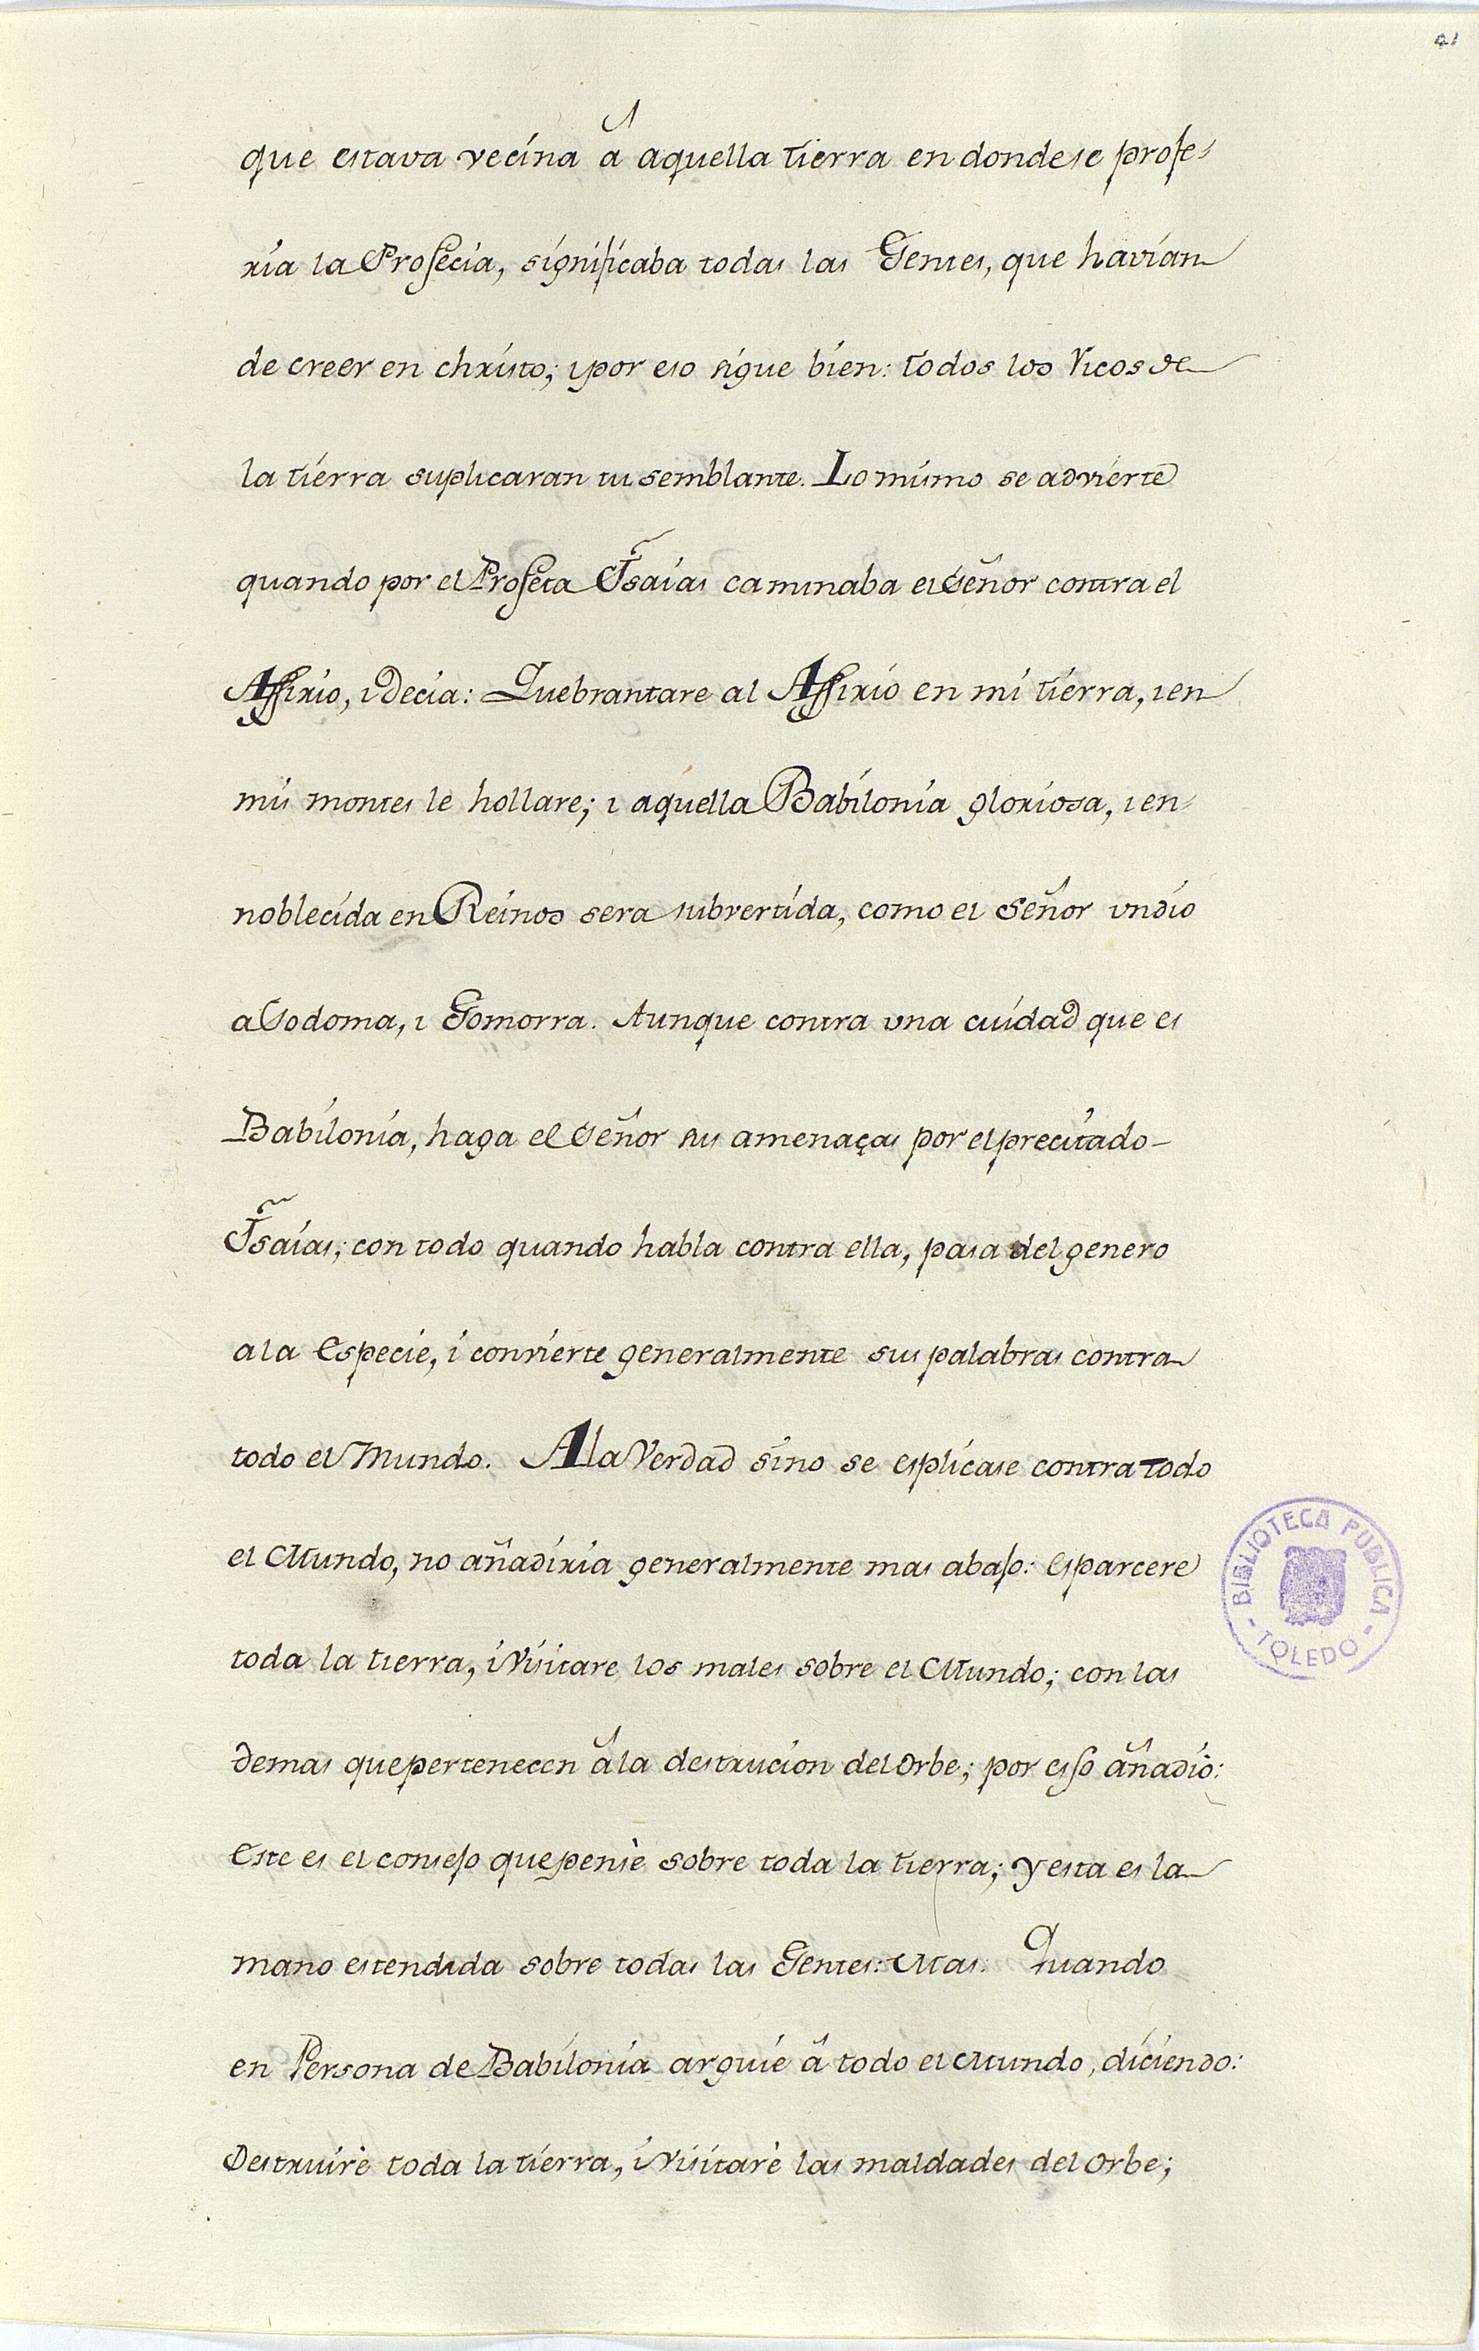 41
que estava vecina â aquella tierra en donde se profe-
ria la Profecia, significaba todas las Gentes, que havian
de creer en christo; y por eso sigue bien: todos los Ricos de
la tierra suplicaran tu semblante. Lo mismo se advierte
quando por el Profeta Isaias caminaba el Señor contra el
Assirio, i decia: Quebrantare al Assirio en mi tierra, i en
mis montes le hollare; i aquella Babilonia gloriosa, i en-
noblecida en Reinos sera subvertida, como el Señor undio
a Sodoma, i Gomorra. Aunque contra una ciudad que es
Babilonia, haga el Señor sus amenaças por el precitado
Isaias; con todo quando habla contra ella, pasa del genero
a la Especie, i convierte generalmente sus palabras contra
todo el Mundo. A la Verdad sino se esplicase contra todo
el Mundo, no añadiria generalmente mas abajo: esparcere
toda la tierra, i visitare los males sobre el Mundo; con las
demas que pertenecen â la destrucion del Orbe; por esso añadiò:
Este es el consejo que pensè sobre toda la tierra; y esta es la
mano estendida sobre todas las Gentes: Mas. Quando
en Persona de Babilonia arguiè â todo el Mundo, diciendo:
Destruirè toda la tierra, i visitarè las maldades del Orbe;
BIBLIOTECA PUBLICA
- TOLEDO -